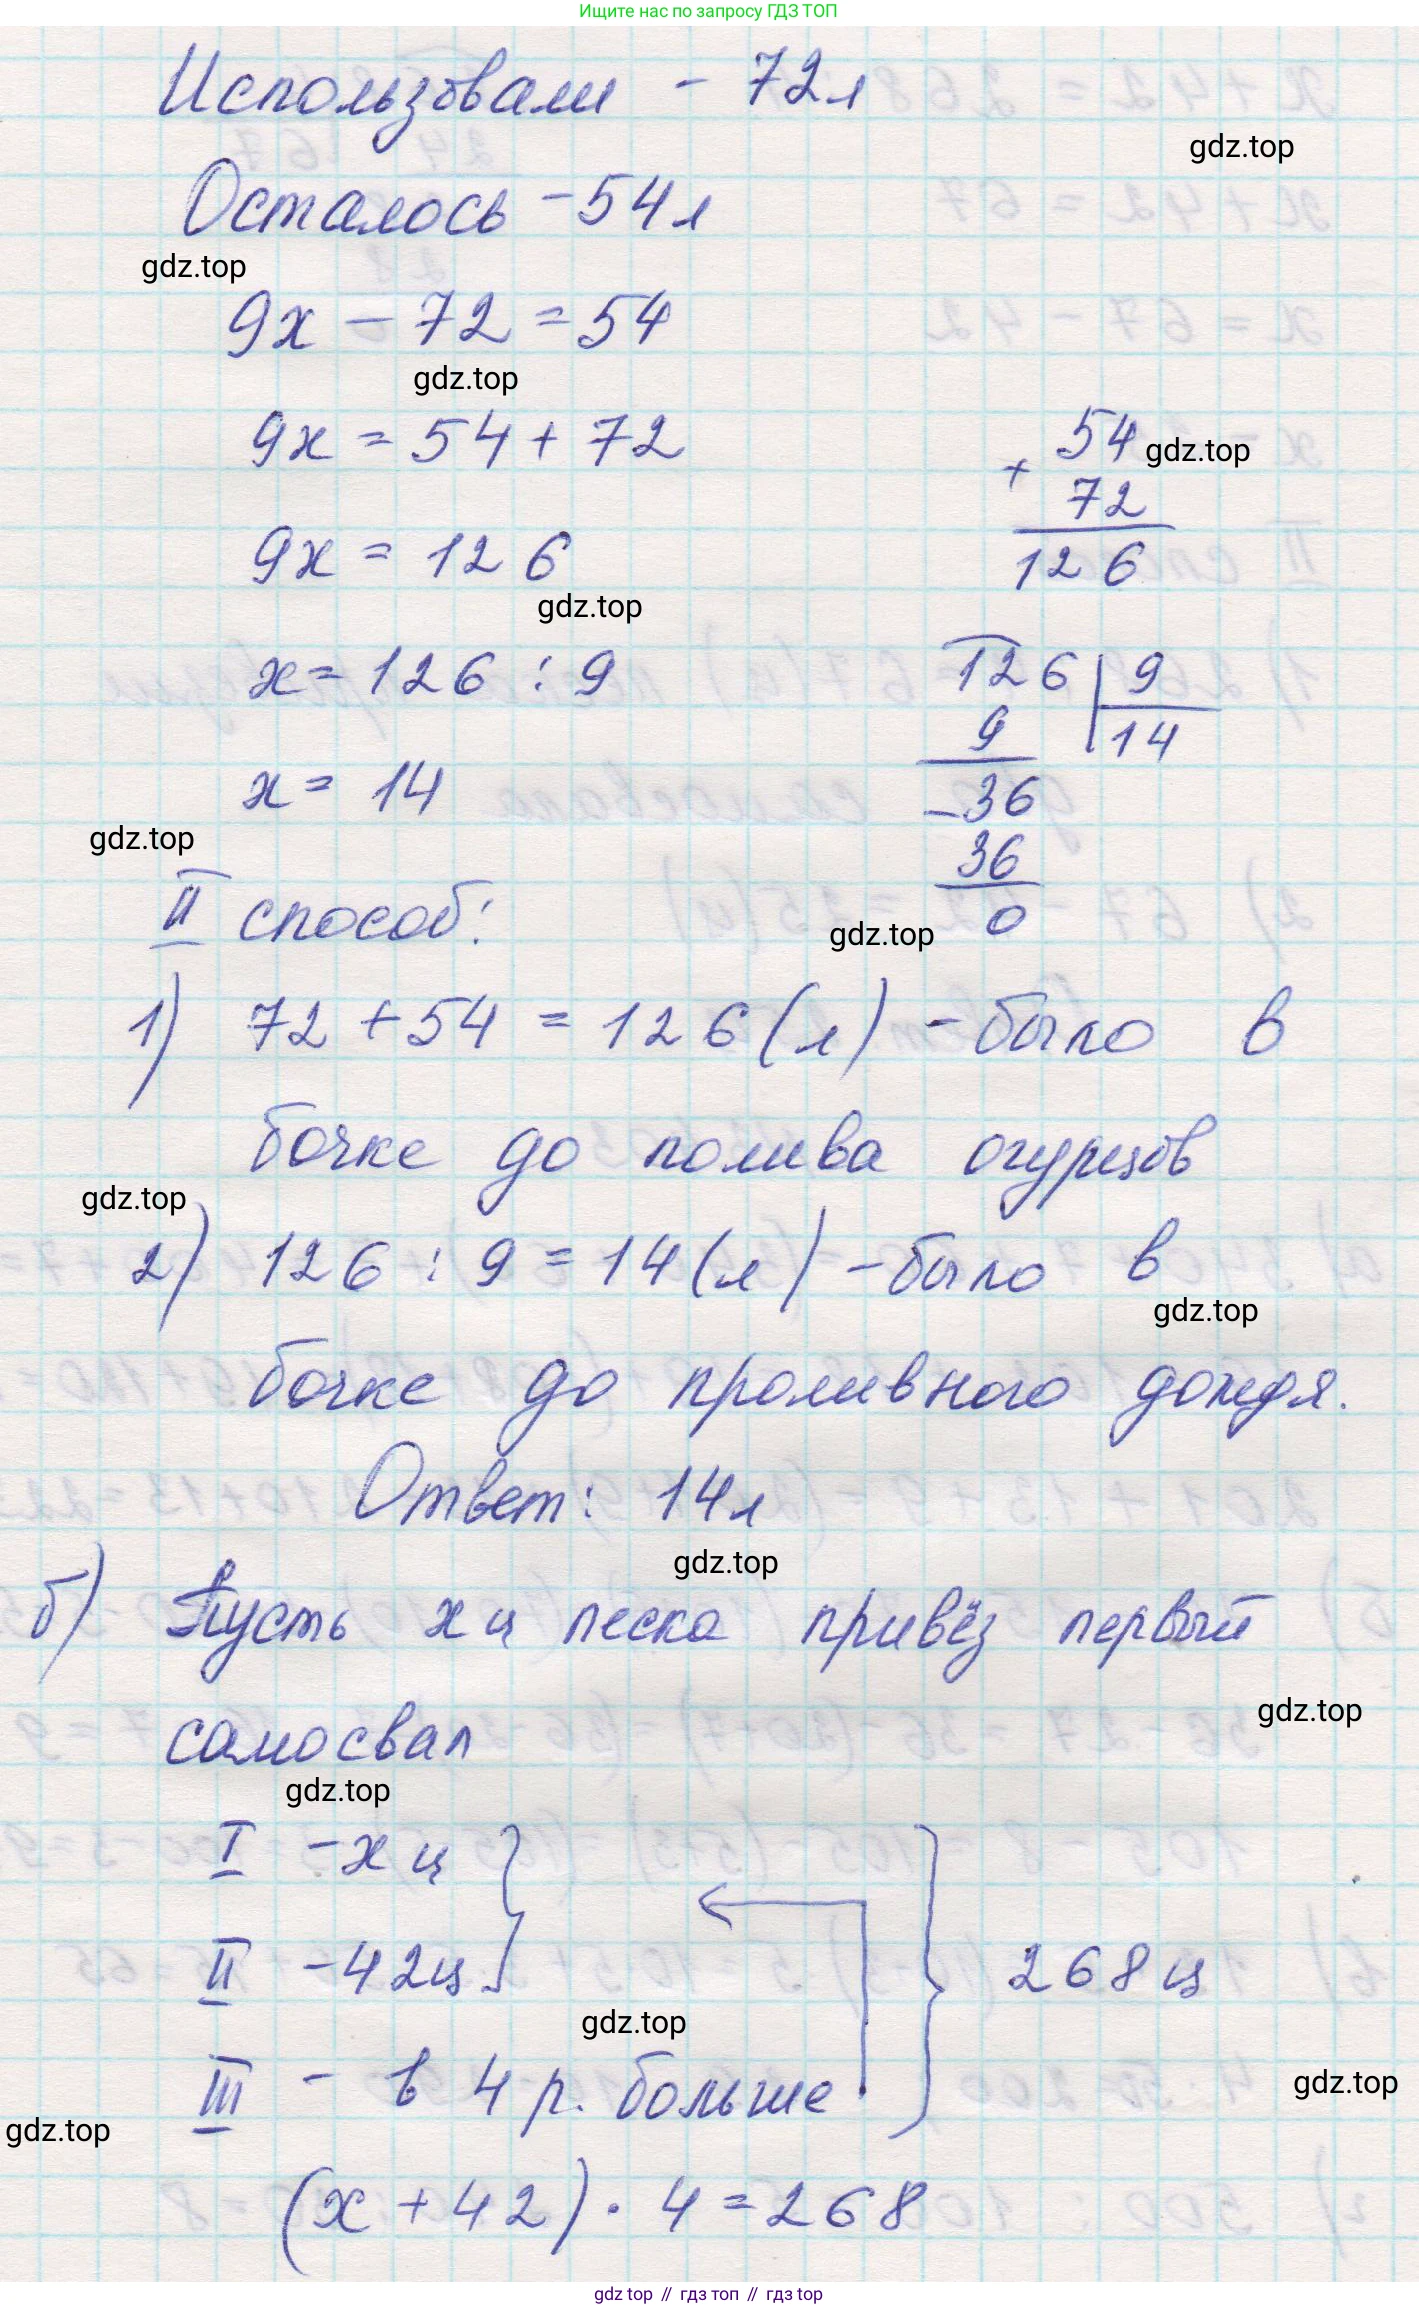 Ищите нас по запросу ГДЗ ТОП
Использовали - 72л
gdz.top
Осталось - 54л
gdz.top
9x - 72 = 54
gdz.top
9x = 54 + 72
54 gdz.top
+ 72
9x = 126
126
gdz.top
x = 126 : 9
126 | 9
9 14
x = 14
- 36
gdz.top
36
II способ:
gdz.top 0
1) 72 + 54 = 126 (л) - было в
бочке до полива огурцов
gdz.top
2) 126 : 9 = 14 (л) - было в
gdz.top
бочке до проливного дождя.
Ответ: 14л
gdz.top
б) Пусть x ц песка привёз первый
gdz.top
самосвал
gdz.top
I - x ц
II - 42ц
268 ц
gdz.top
III - в 4 р. больше
gdz.top
gdz.top
(x + 42) · 4 = 268
gdz top // гдз топ // gdz top